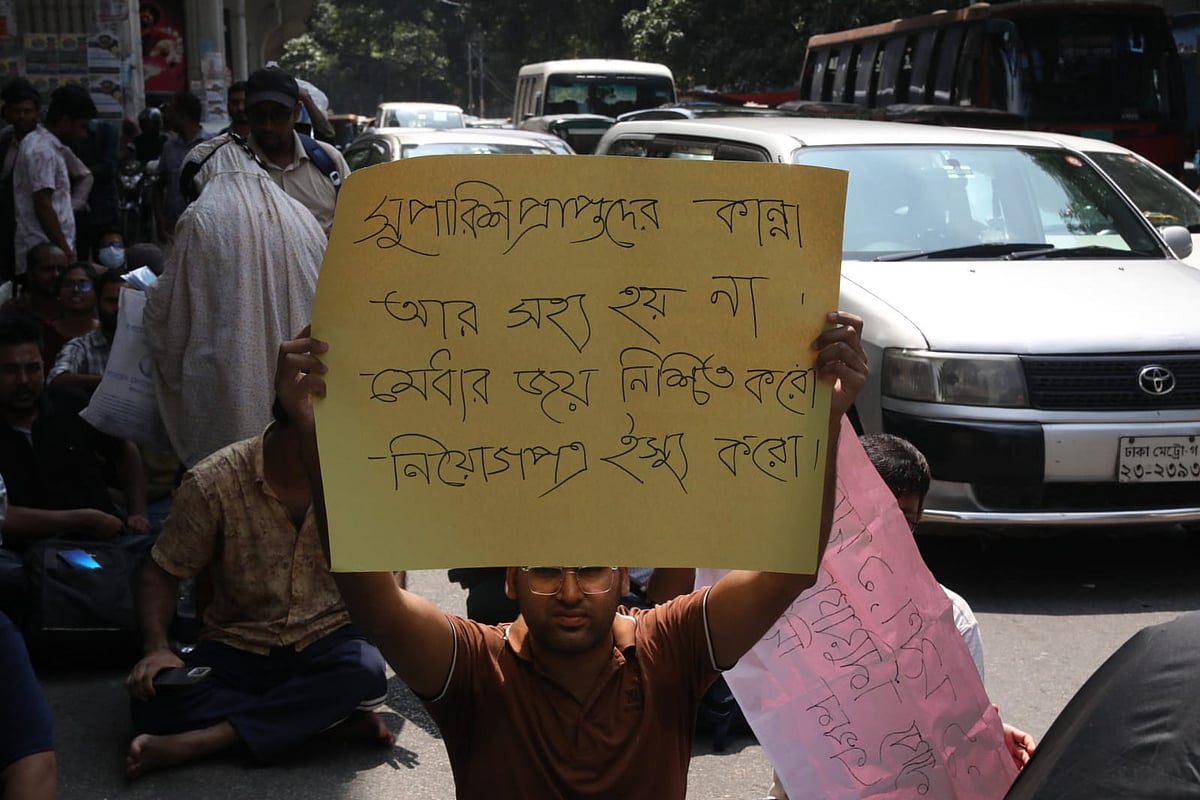 সুপারিশপ্রাপ্তদের কান্না
আর সহ্য হয় না ।
মেধার জয় নিশ্চিত করো
নিয়োগপত্র ইস্যু করো।
ঢাকা মেট্রো-গ
২৩-২৩১৩